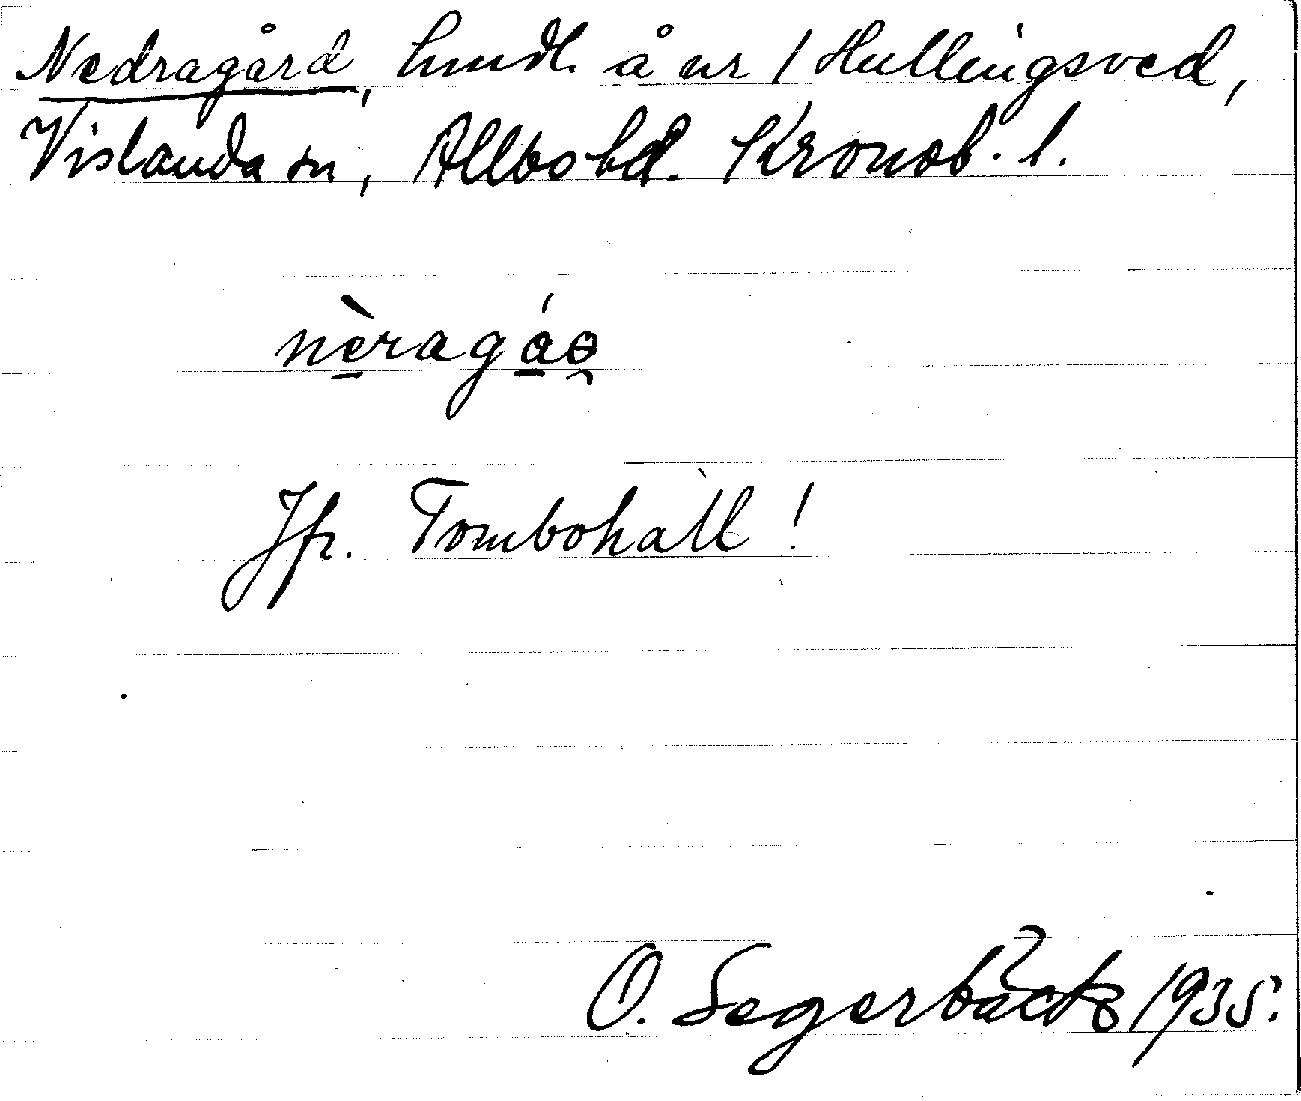 Nedragård, hmdl. å nr 1 Hullingsved,
Vislanda sn, Allbo hd. Kronob. l.
nèragáə
Jfr. Tombohall!
O. Segerbäck 1935.